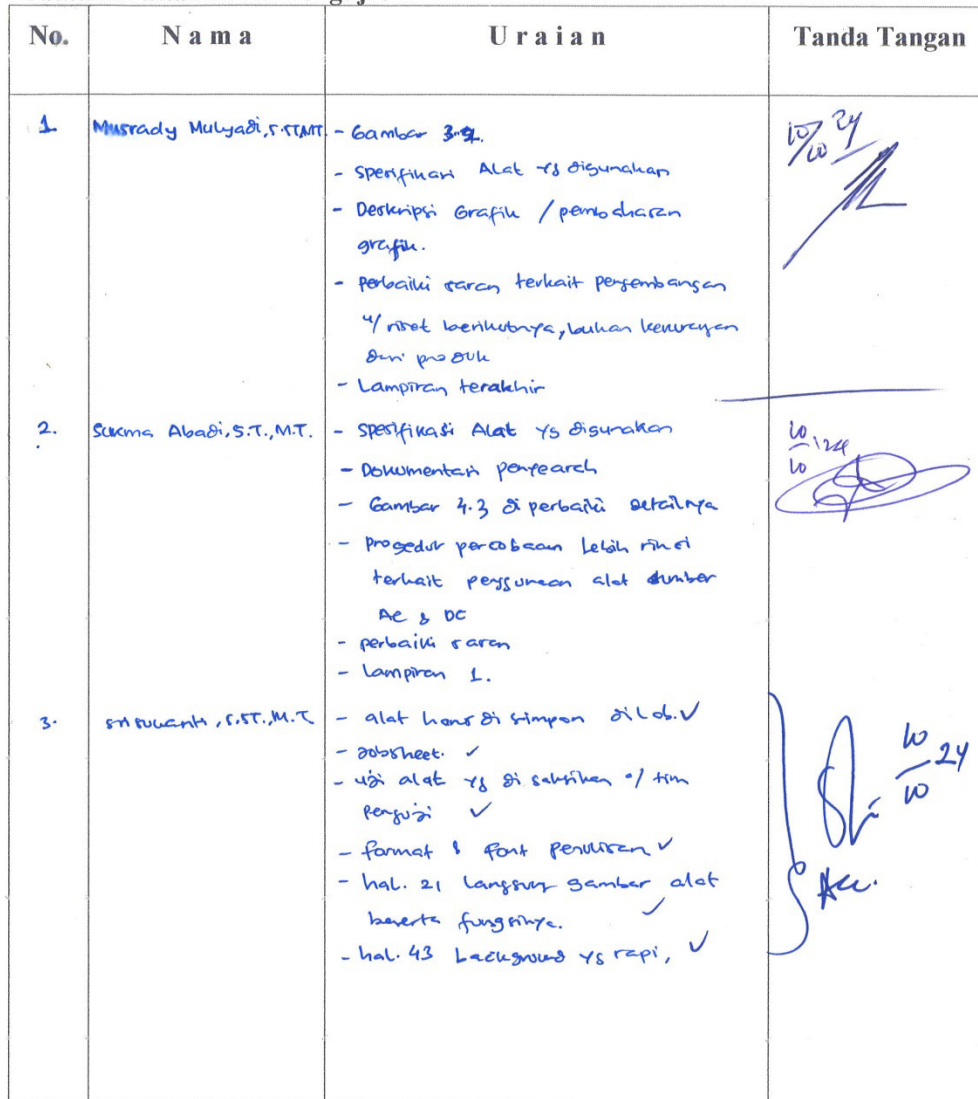 No. Nama Uraian Tanda Tangan
1. Musrady Mulyadi, S.ST,MT - Gambar 3.2.
10/10 24
- Spesifikasi Alat yg digunakan
- Deskripsi Grafik / pembahasan
grafik.
- perbaiki saran terkait pengembangan
u/ riset berikutnya, bukan kekurangan
dari produk
- Lampiran terakhir
2. Sukma Abadi, S.T., M.T. - Spesifikasi Alat yg digunakan
10/10 '24
- Dokumentasi
- Gambar 4.3 di perbaiki detailnya
- Prosedur percobaan Lebih rinci
terkait penggunaan alat sumber
AC & DC
- perbaiki saran
- Lampiran 1.
3. Sri Suwanti, S.ST., M.T - alat harus di simpan di Lab. ✓
- Jobsheet. ✓
- uji alat yg di saksikan o/ tim
penguji ✓
10/10 24
- format & font penulisan ✓
- hal. 21 langsung gambar alat
beserta fungsinya. ✓
Acc.
- hal. 43 background yg rapi, ✓